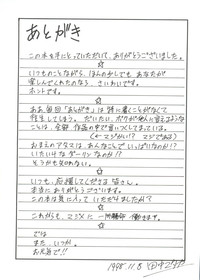 あとがき
この本を手にとっていただいて、ありがとうございました。
☆
いつものことながら、ほんの少しでも、あなたが
楽しんでくれたのなら、さいわいです。
ホントです。
☆
ああ毎回「あとがき」は特に書くことがなくて
怪しまう。だいたい、ボクが他人に言えるような
ことは、全部、作品の中で言っつくしてまっている。
(←マジかい!? マジであるか)
おまえのアタマは、あんなことで いっぱいなのか!?
いたいけなダーリンなのか!?
そうかも知れない。
☆
いつも、応援してくださる皆さん。
本当にありがとうございます。
この本は気に入っていただけましたか?
☆
これからも、マジメに一所懸命、働きます。
☆
では
また、いつか。
お元気で!!
1998.11.5